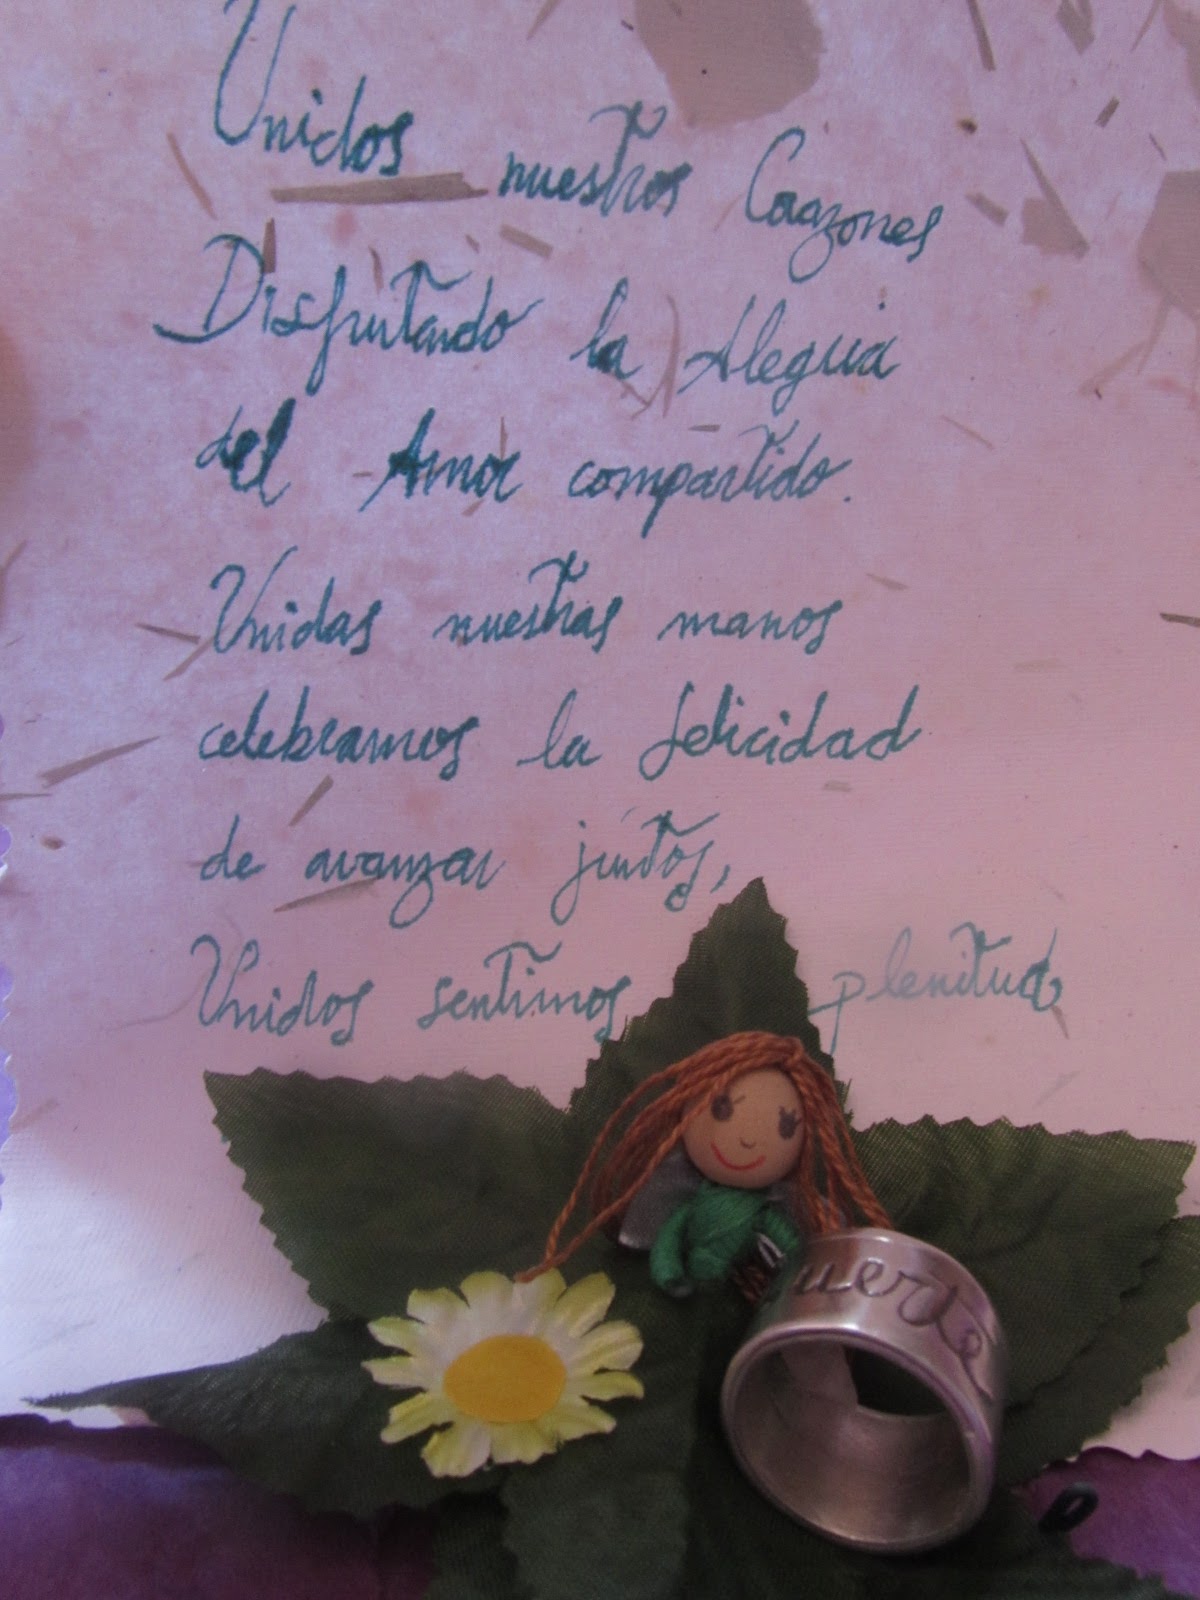 Unidos nuestros Corazones
Disfrutando la Alegria
del Amor compartido.
Unidas nuestras manos
celebramos la felicidad
de avanzar júntos,
Unidos sentimos plenitud